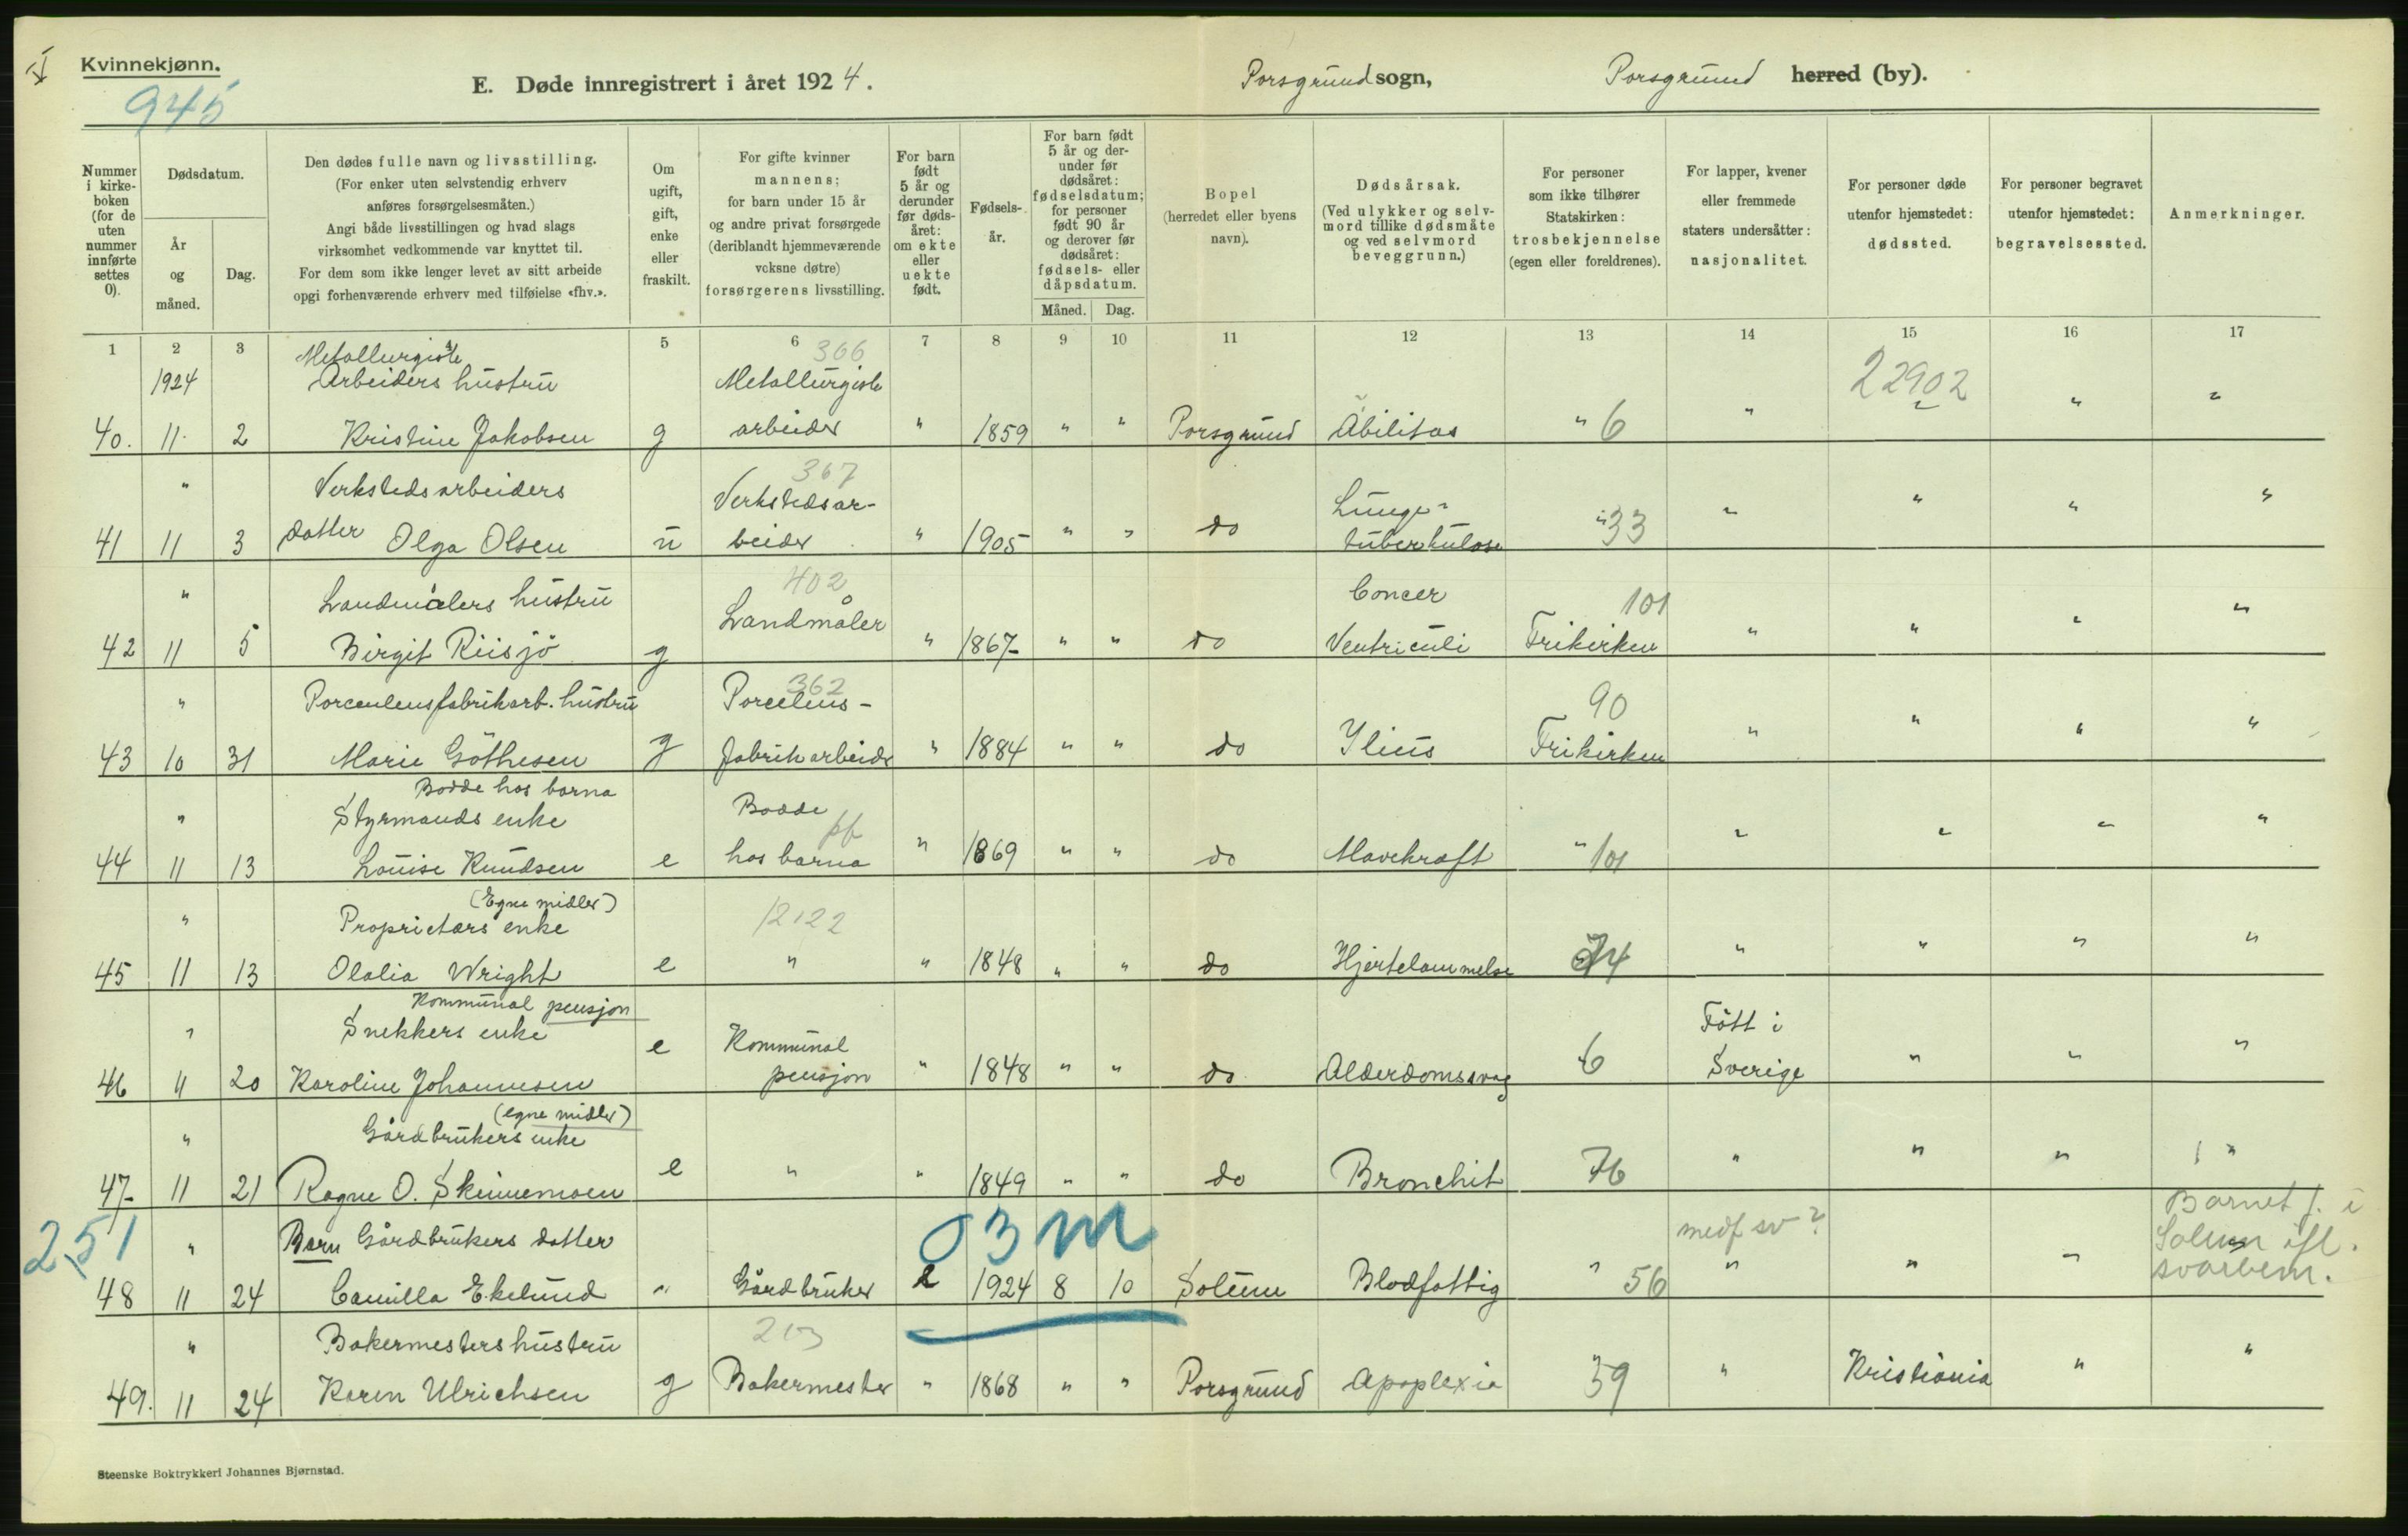 Kvinnekjønn.
945
E. Døde innregistrert i året 1924.
Porsgrund sogn,
Porsgrund herred (by).
Nummer i kirkeboken (for de uten nummer innførte settes 0).
Dødsdatum.
År og måned.
Dag.
Den dødes fulle navn og livsstilling.
(For enker uten selvstendig erhverv
anføres forsørgelsesmåten.)
Angi både livsstillingen og hvad slags
virksomhet vedkommende var knyttet til.
For dem som ikke lenger levet av sitt arbeide
opgi forhenværende erhverv med tilføielse «fhv.».
Om ugift, gift, enke eller fraskilt.
For gifte kvinner
mannens;
for barn under 15 år
og andre privat forsørgede
(deriblandt hjemmeværende
voksne døtre)
forsørgerens livsstilling.
For barn født 5 år og derunder før dødsåret: om ekte eller uekte født.
Fødselsår.
For barn født 5 år og derunder før dødsåret: fødselsdatum; for personer født 90 år og derover før dødsåret: fødsels- eller dåpsdatum.
Måned. Dag.
Bopel
(herredet eller byens
navn).
Dødsårsak.
(Ved ulykker og selvmord tillike dødsmåte og ved selvmord beveggrunn.)
For personer
som ikke tilhører
Statskirken:
trosbekjennelse
(egen eller foreldrenes).
For lapper, kvener
eller fremmede
staters undersåtter:
nasjonalitet.
For personer døde
utenfor hjemstedet:
dødssted.
For personer begravet
utenfor hjemstedet:
begravelsessted.
Anmerkninger.
1 2 3 5 6 7 8 9 10 11 12 13 14 15 16 17
1924 Metallurgiske Arbeiders hustru 366 Metallurgisk 22902
40. 11. 2 Kristine Jakobsen g arbeider " 1859 " " Porsgrund Äbilitas " 6 " " " "
" Verkstedsarbeiders 367 Verkstedsar- Lunge-
41 11 3 datter Olga Olsen u beider " 1905 " " do tuberkulose " 33 " " " "
" Landmålers hustru 402 Landmåler Cancer 101
42 11 5 Birgit Riisjö g " 1867 " " do Ventriculi Frikirken " " " "
" Porcenlensfabrikarb. hustru 362 Porcelens- 90
43 10 31 Marie Göthesen g fabrikarbeider " 1884 " " do Ilius Frikirken " " " "
Bodde hos barna
" Styrmands enke Bodde pf
44 11 13 Louise Knudsen e hos barna " 1869 " " do Mavekraft " 101 " " " "
(Egne midler)
" Proprietærs enke 12122
45 11 13 Olalia Wright e " " 1848 " " do Hjertelammelse 74 " " " "
Kommunal pensjon
" Snekkers enke Kommunal Fött i
46 11 20 Karoline Johannesen e pensjon " 1848 " " do Alderdomssvag 6 Sverige " " "
(egne midler)
" Gårdbrukers enke
47 11 21 Ragne O. Skinnemoen e " " 1849 " " do Bronchit 76 " " " "
251 03 m
" Barn Gårdbrukers datter medf sv? Barnet f. i Solum ifl. svarbem.
48 11 24 Camilla Ekelund " Gårdbruker e 1924 8 10 Solum Blodfattig " 56 " " "
" Bakermesters hustru 213
49. 11 24 Karen Ulrichsen g Bakermester " 1868 " " Porsgrund Apoplexia 59 " Kristiania " "
Steenske Boktrykkeri Johannes Bjørnstad.